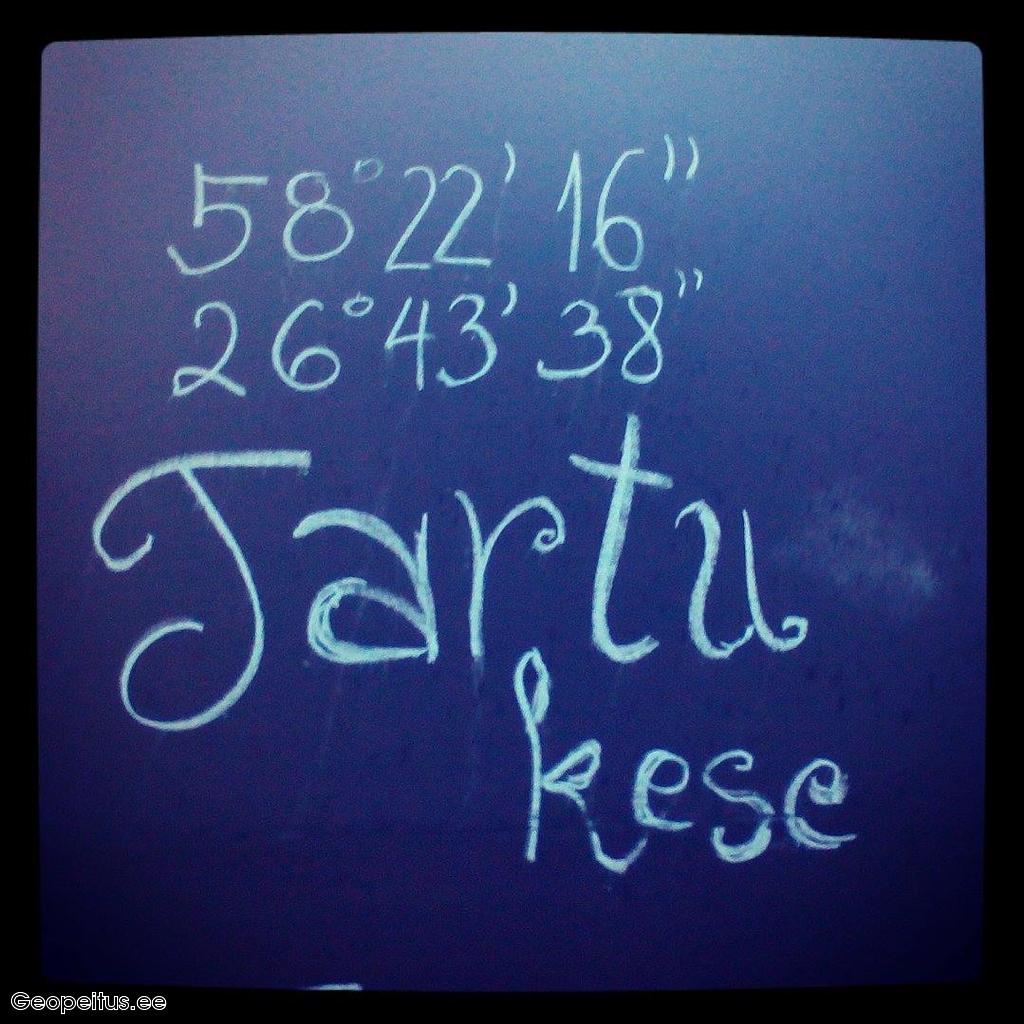 58°22' 16"
26°43' 38"
Tartu
kese
Geopeitus.ee